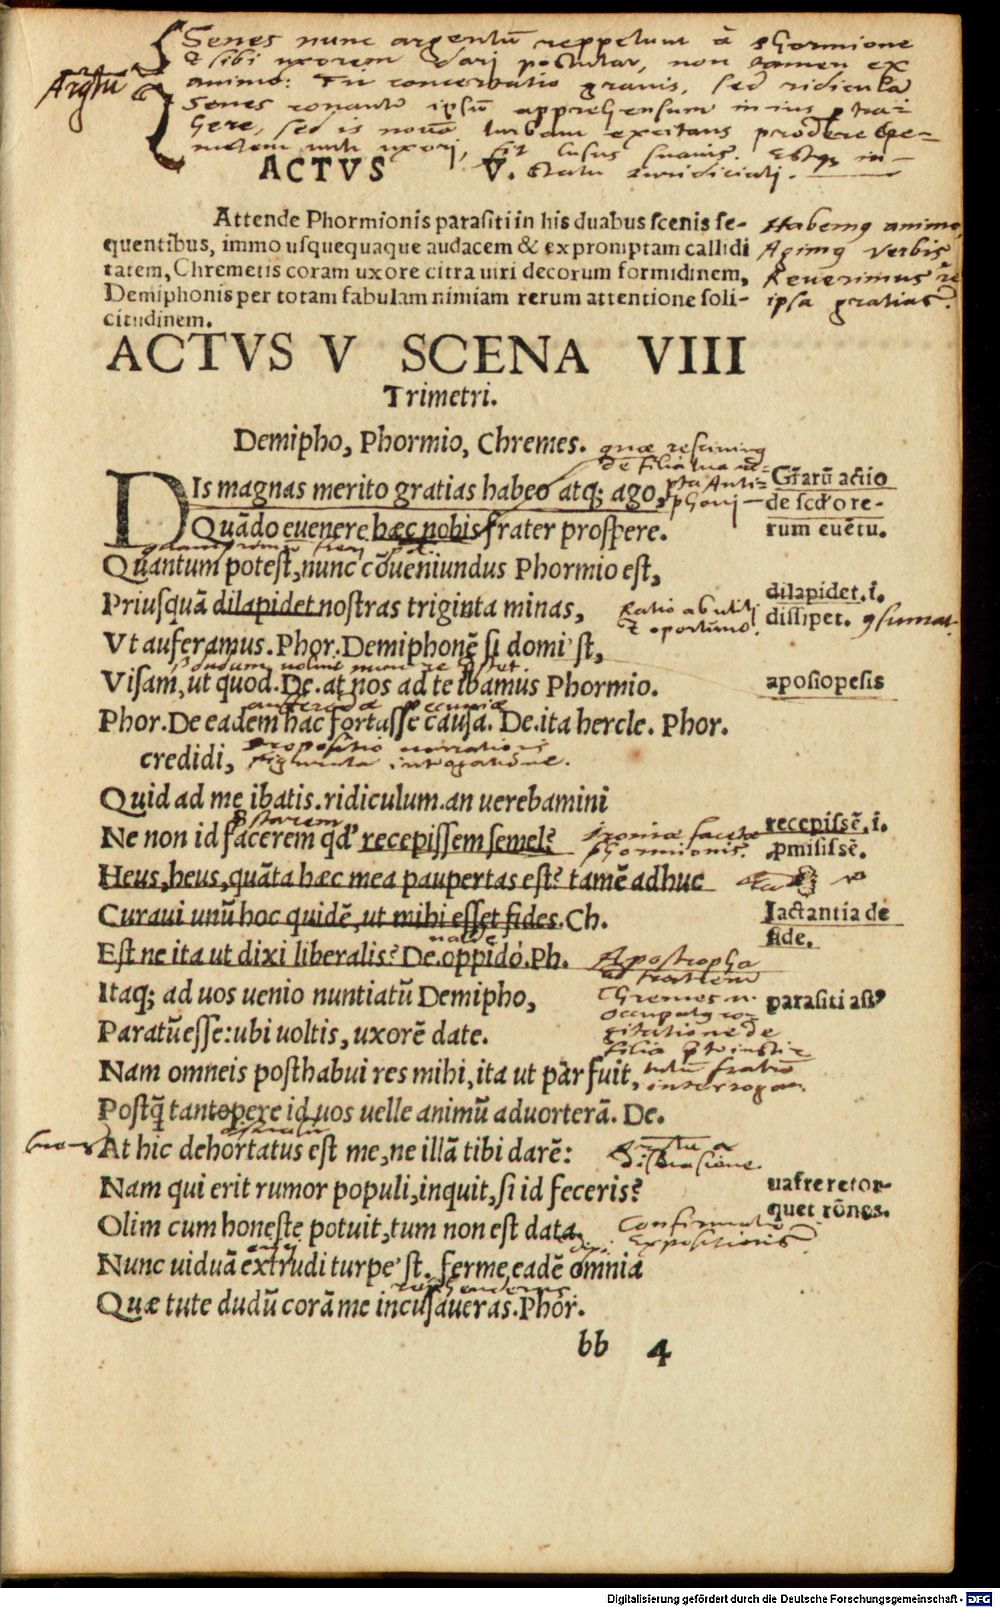 Senes nunc argentū reppetunt à phormione
& sibi uxorem dari postulat, non tamen ex
animo: Fit concertatio gravis, sed ridicula
Argtū
Senes conantr ipsū apprehensum in ius trahere, sed is novā turbam excitans
uxori, fit lusus suavis. Estq; in
ACTVS V. statu iuridiciali.
Attende Phormionis parasiti in his duabus scenis se-
quentibus, immo usquequaque audacem & expromptam callidi
tatem, Chremetis coram uxore citra uiri decorum formidinem,
Demiphonis per totam fabulam nimiam rerum attentione soli-
citudinem.
Habemq animo,
Agimq verbis
Reverimus re
ipsa gratias.
ACTVS V SCENA VIII
Trimetri.
Demipho, Phormio, Chremes.
DIs magnas merito gratias habeo atq; ago,
Quādo euenere hæc nobis frater prospere.
Gr̄arū actio
de scd'o re-
rum euētu.
Quantum potest, nunc cōueniundus Phormio est,
Priusquā dilapidet nostras triginta minas,
dilapidet. i.
dissipet. 9sumat.
Ratio ab utili
& oportuno.
Vt auferamus. Phor. Demiphonē si domi'st,
Visam, ut quod. De. at nos ad te ibamus Phormio.
aposiopesis
Phor. De eadem hac fortasse causa. De. ita hercle. Phor.
credidi,
Propositio narrationis
figmenta interogatione.
Quid ad me ibatis. ridiculum. an uerebamini
Ne non id facerem qd' recepissem semel?
Ironia faceta
phormionis.
recepissē. i.
ꝓmisissē.
Heus, heus, quāta hæc mea paupertas est? tamē adhuc
Curaui unū hoc quidē, ut mihi esset fides. Ch.
Iactantia de
fide.
Est ne ita ut dixi liberalis? De. oppido. Ph.
Apostropha
ad fratrem
Chremes
occupatq co-
gitatione de
filia
Itaq; ad uos uenio nuntiatū Demipho,
parasiti ast9
Paratū esse: ubi uoltis, uxorē date.
Nam omneis posthabui res mihi, ita ut par fuit,
Postq̄ tantopere id uos uelle animū aduorterā. De.
At hic dehortatus est me, ne illā tibi darē:
Nam qui erit rumor populi, inquit, si id feceris?
uafre retor-
quet rōnes.
Olim cum honeste potuit, tum non est data.
Confirmatio
Expositionis
Nunc uiduā extrudi turpe'st. ferme, eadē omnia
Quæ tute dudū corā me incusaueras. Phor.
bb 4
Digitalisierung gefördert durch die Deutsche Forschungsgemeinschaft - DFG